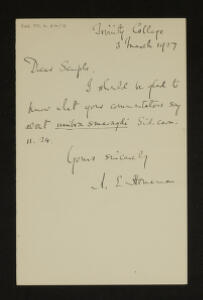 Trinity College
3 March 1927
Dear Semple,
I should be glad to
know what your commentators say
about umbra smaragdi Sid. carm.
11. 24.
Yours sincerely
A. E. Housman